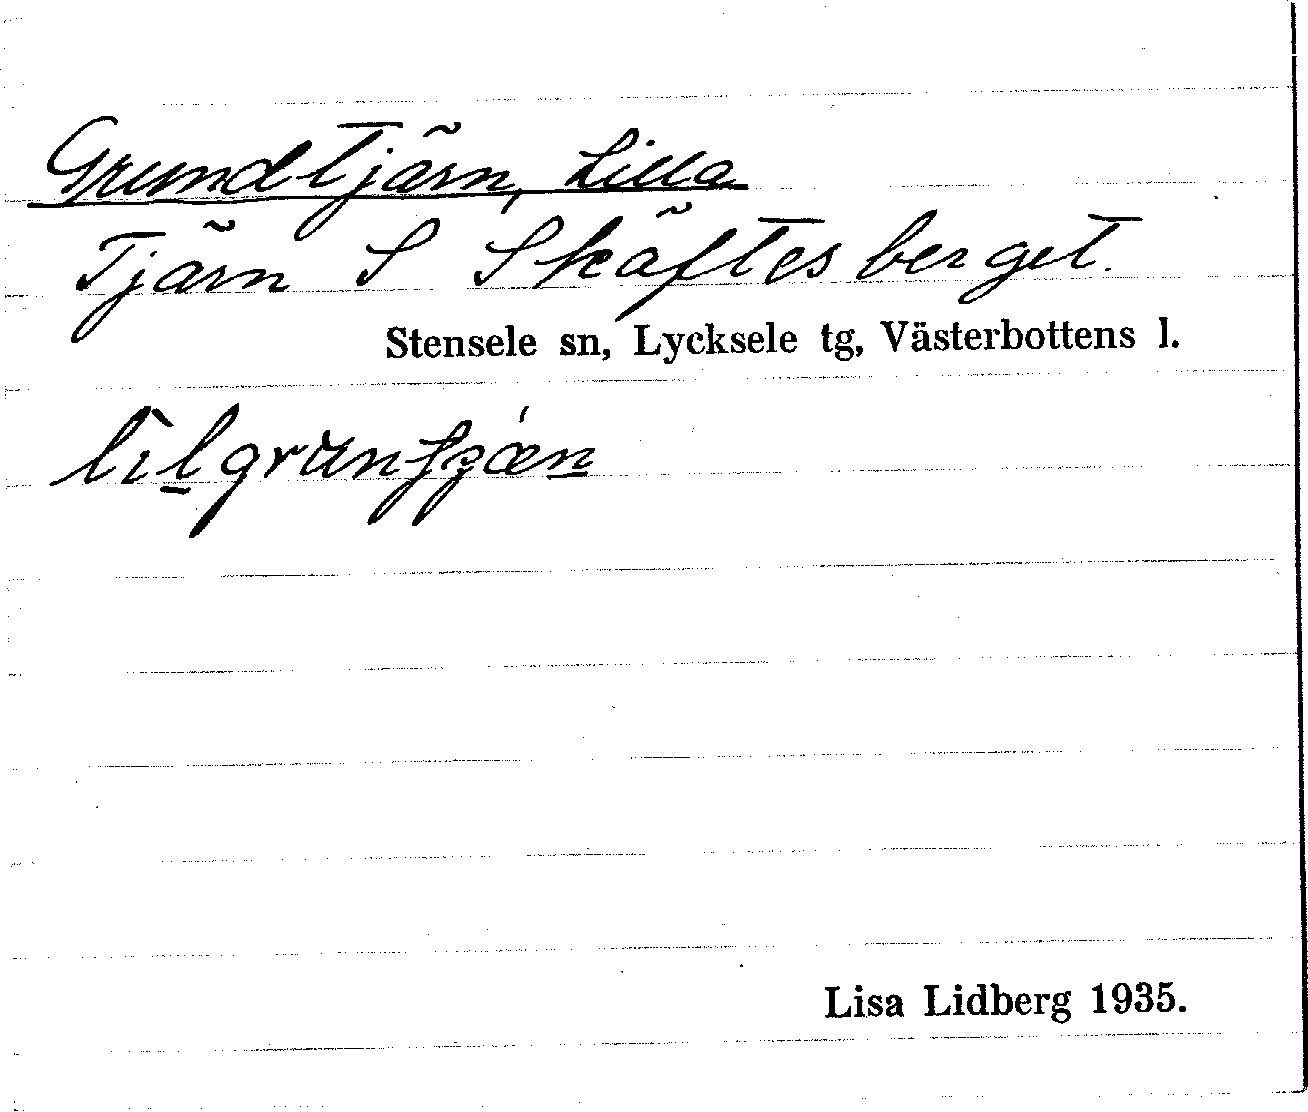 Grundtjärn, Lilla
Tjärn S Skäftesberget.
Stensele sn, Lycksele tg, Västerbottens l.
Lisa Lidberg 1935.